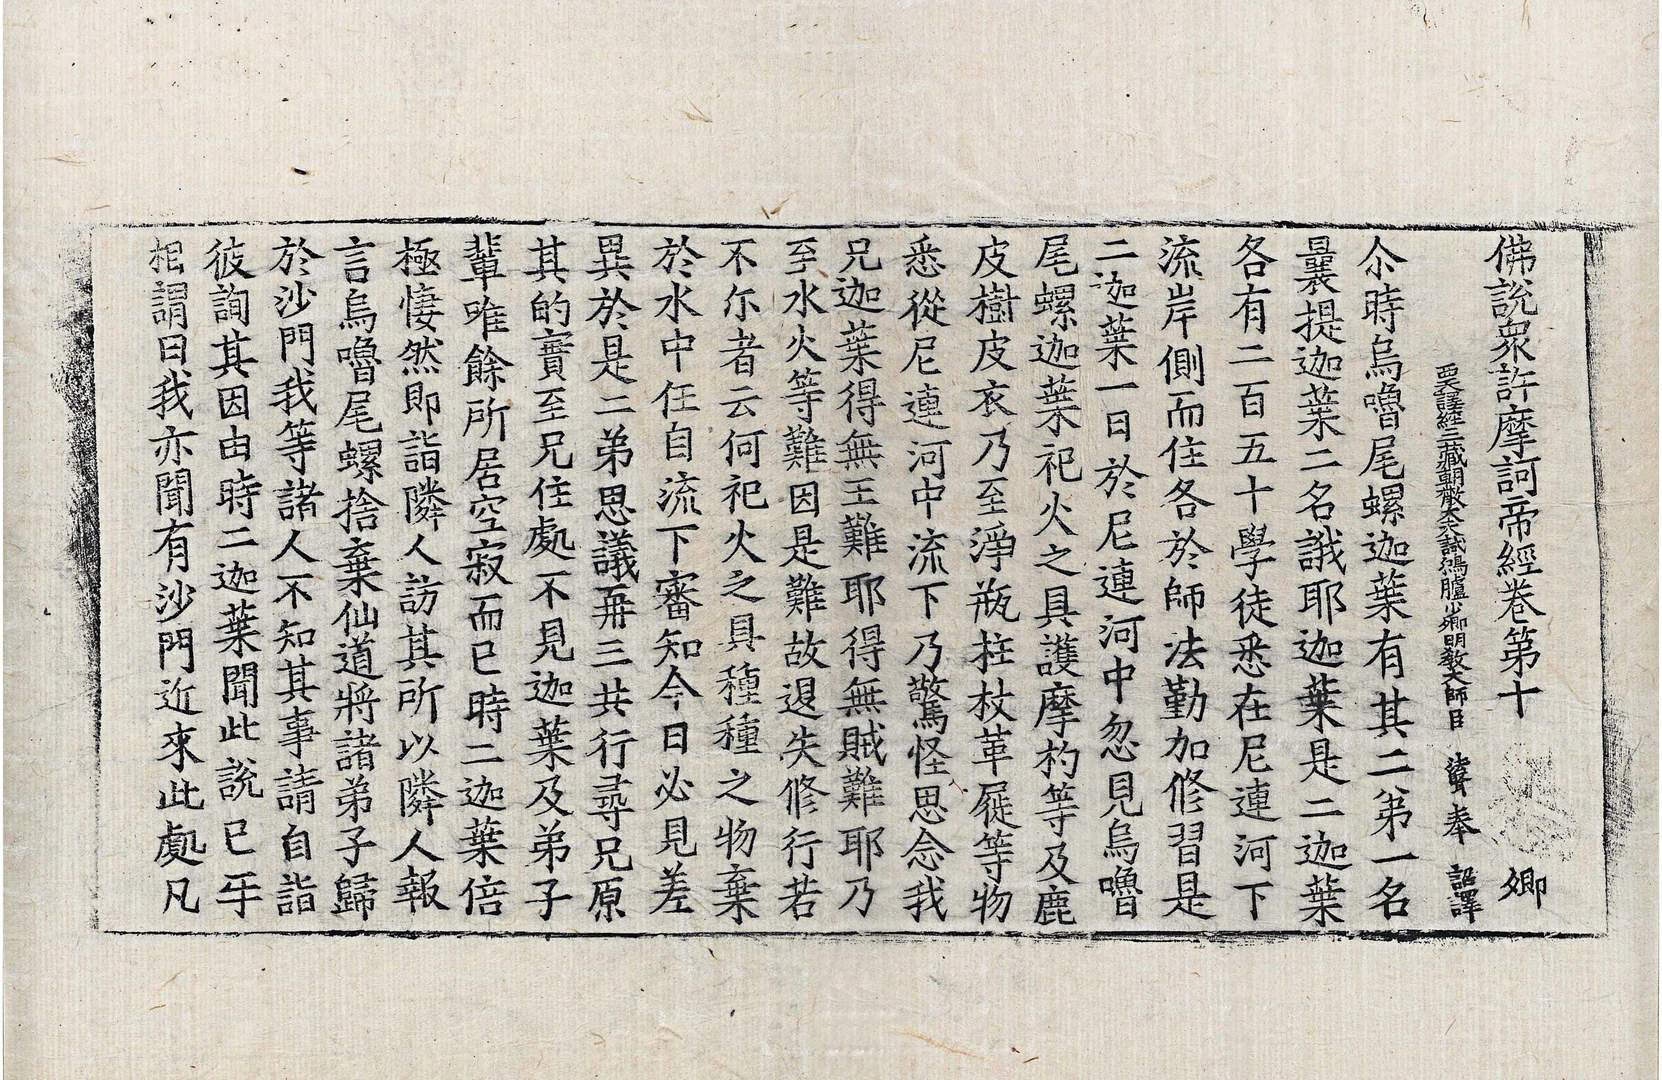 佛說衆許摩訶帝經卷第十　卿
西天譯經三藏朝散大夫試鴻臚少卿明教大師臣法賢奉　詔譯
尒時烏嚕尾螺迦葉有其二弟一名
曩提迦葉二名誐耶迦葉是二迦葉
各有二百五十學徒悉在尼連河下
流岸側而住各於師法勤加修習是
二迦葉一日於尼連河中忽見烏嚕
尾螺迦葉祀火之具護摩杓等及鹿
皮樹皮衣乃至淨瓶柱杖革屣等物
悉從尼連河中流下乃驚怪思念我
兄迦葉得無王難耶得無賊難耶乃
至水火等難因是難故退失修行若
不尒者云何祀火之具種種之物棄
於水中任自流下審知今日必見差
異於是二弟思議再三共行尋兄原
其的實至兄住處不見迦葉及弟子
輩唯餘所居空寂而已時二迦葉倍
極悽然即詣隣人訪其所以隣人報
言烏嚕尾螺捨棄仙道將諸弟子歸
於沙門我等諸人不知其事請自詣
彼詢其因由時二迦葉聞此說已乎
相謂曰我亦聞有沙門近來此處凡